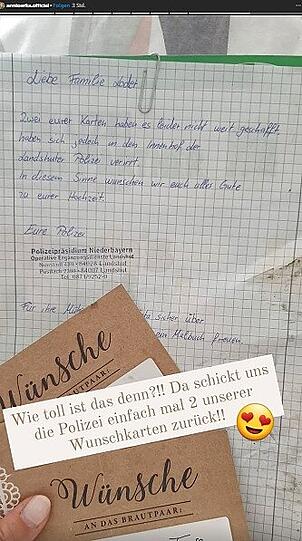 annloerke.official • Folgen 3 Std.
Liebe Familie
Zwei eurer Karten haben es leider nicht weit geschafft
haben sich jedoch in den Innenhof der
Landshuter Polizei verirrt.
In diesem Sinne wünschen wir euch alles Gute
zu eurer Hochzeit.
Eure Polizei
Polizeipräsidium Niederbayern
Operative Ergänzungsdienste Landshut
84028 Landshut
84007 Landshut
Für ihre da sicher über
ein Malbuch freuen.
Wünsche
Wie toll ist das denn?!! Da schickt uns
die Polizei einfach mal 2 unserer
Wunschkarten zurück!! 😍
Wünsche
AN DAS BRAUTPAAR: